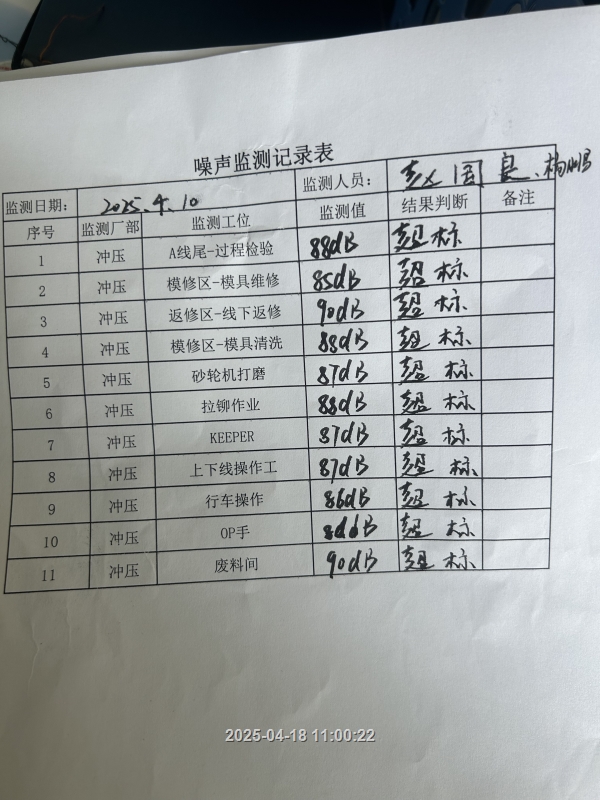 噪声监测记录表
监测日期： 2025.4.10 监测人员： 赵国良、杨鹏
序号 监测厂部 监测工位 监测值 结果判断 备注
1 冲压 A线尾-过程检验 88dB 超标
2 冲压 模修区-模具维修 85dB 超标
3 冲压 返修区-线下返修 90dB 超标
4 冲压 模修区-模具清洗 88dB 超标
5 冲压 砂轮机打磨 87dB 超标
6 冲压 拉铆作业 88dB 超标
7 冲压 KEEPER 87dB 超标
8 冲压 上下线操作工 87dB 超标
9 冲压 行车操作 86dB 超标
10 冲压 OP手 超标
11 冲压 废料间 90dB 超标
2025-04-18 11:00:22